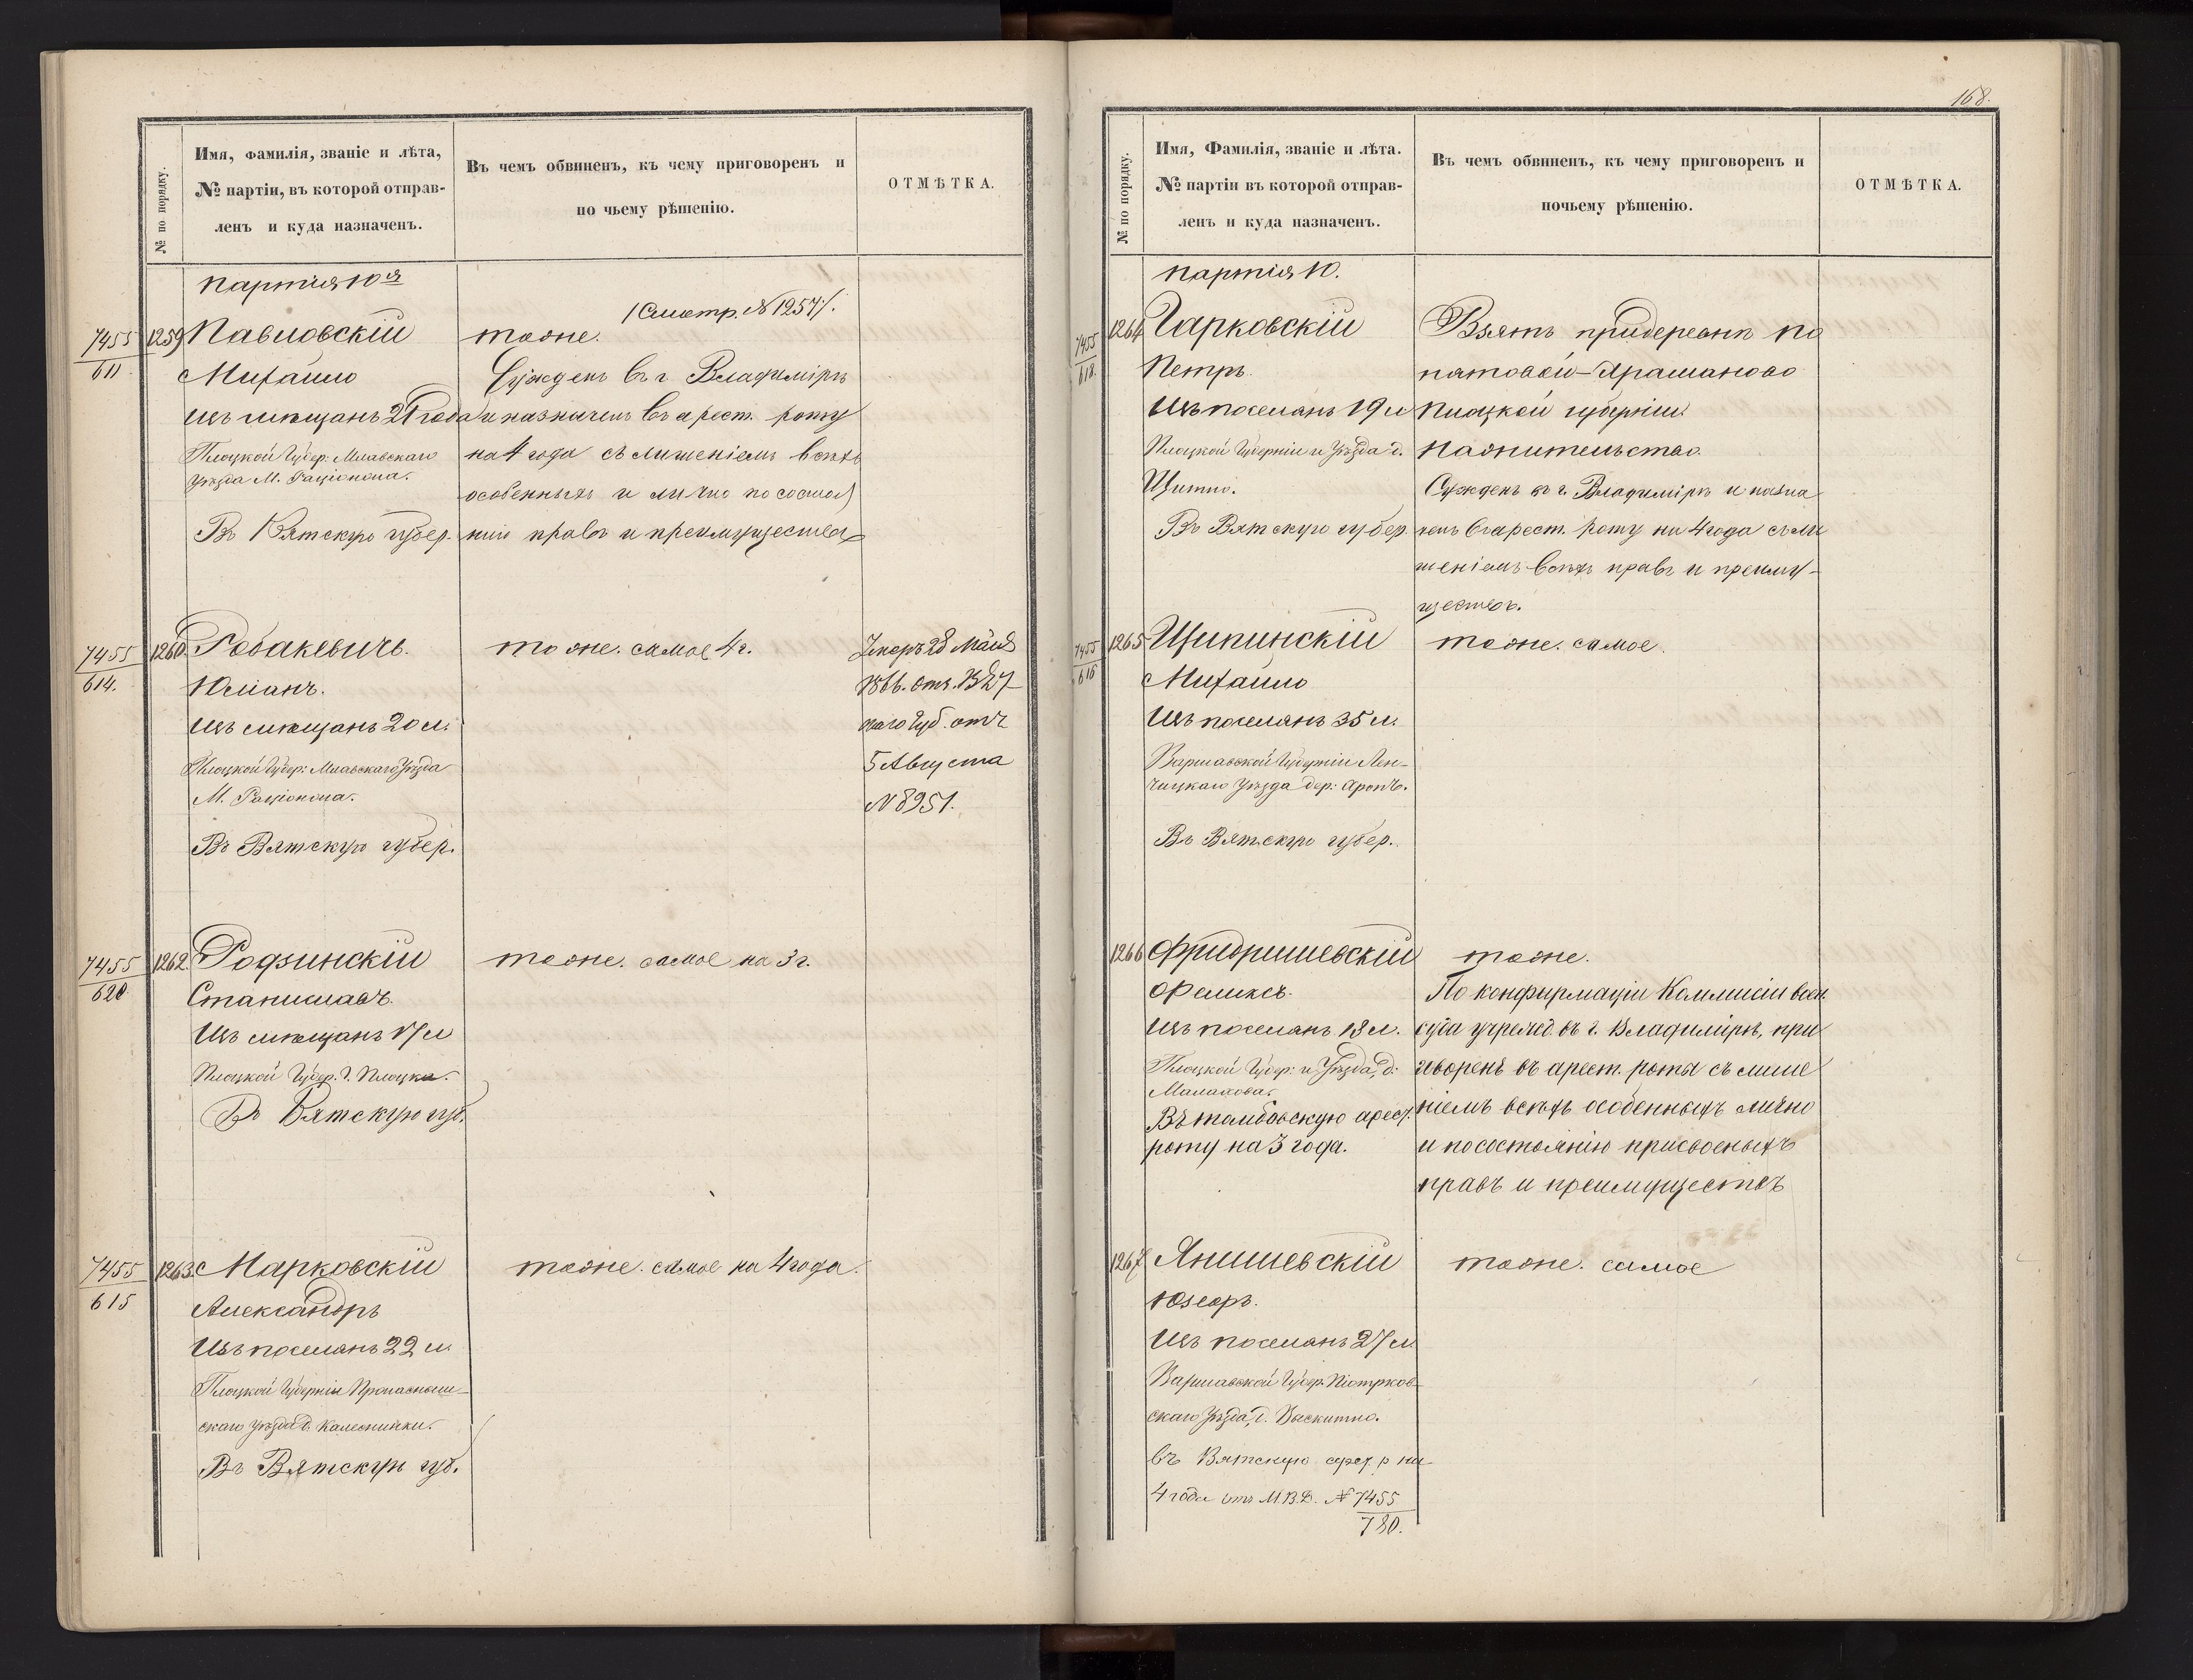 № по порядку.
Имя, фамилія, званіе и лѣта,
№ партіи, въ которой отправ-
ленъ и куда назначенъ.
Въ чемъ обвиненъ, къ чему приговоренъ и
по чьему рѣшенію.
ОТМѢТКА.
Партія 10я
/Смотр. № 1257/.
7455
611
1259
Павловскій
Михаило
Изъ мѣщанъ 21 года
Плоцкой Губер: Млавскаго
уѣзда М. Раціонжа.
Въ Вятскую губер.
тоже.
Сужденъ въ г Владимірѣ
и назначенъ въ арест. роту
на 4 года съ лишеніемъ всѣхъ
особенныхъ и лично по состоя
нію правъ и преимуществъ
7455
614.
1260.
Робакевичъ.
Юліанъ.
Изъ мѣщанъ 20 л.
Плоцкой Губер: Млавскаго Уѣзда
М. Раціонжа.
Въ Вятскую губер.
тоже. самое 4 г.
Умеръ 28 Мая
1866.
наго Губ. отъ
5 Августа
№ 8951.
7455
620
1262.
Родзинскій
Станиславъ.
Изъ мѣщанъ 17 л
Плоцкой Губер. Г. Плоцка.
Въ Вятскую губ.
тоже. самое на 3 г.
7455
615
1263.
Марковскій
Александръ
Изъ поселянъ 22 л.
Плоцкой Губерніи Праснышь-
скаго Уѣзда д.
Въ Вятскую губ.
тоже. самое на 4 года.
168.
№ по порядку.
Имя, Фамилія, званіе и лѣта.
№ партіи въ которой отправ-
ленъ и куда назначенъ.
Въ чемъ обвиненъ, къ чему приговоренъ и
почьему рѣшенію.
ОТМѢТКА.
Партія 10.
7455
618.
1264
Чарковскій
Петръ.
Изъ поселянъ 19 л
Плоцкой Губерніи и Уѣзда д.
Щитно.
Въ Вятскую губер.
Взятъ придеревнѣ По
Плоцкой губерніи.
Сужденъ въ г. Владимірѣ и назна
ченъ въ арест. роту на 4 года съ ли
шеніемъ всѣхъ правъ и преиму-
ществъ.
7455
616
1265
Щипинскій
Михаило
Изъ поселянъ 35 л.
Варшавской Губерніи Лен-
чицкаго Уѣзда дер:
Въ Вятскую губер.
тоже. самое.
1266
Фридришевскій
Феликсъ.
Изъ поселянъ 18 л.
Плоцкой Губер: и Уѣзда, д:
Малахова.
Въ тамбовскую арест.
роту на 3 года.
тоже.
По конфирмаціи Коммисіи воен.
суда учрежд. въ г. Владимірѣ, при
говоренъ въ арест. роты съ лише
ніемъ всѣхъ особенныхъ лично
и посостоянію присвоеныхъ
правъ и преимуществъ
1267
Янишевскій
Юзефъ.
Изъ поселянъ 27 л.
Варшавской Губер. Піотрков-
скаго Уѣзда, д.
въ Вятскую арест. р на
4 года отъ М.В.Д. № 7455
780.
тоже. самое